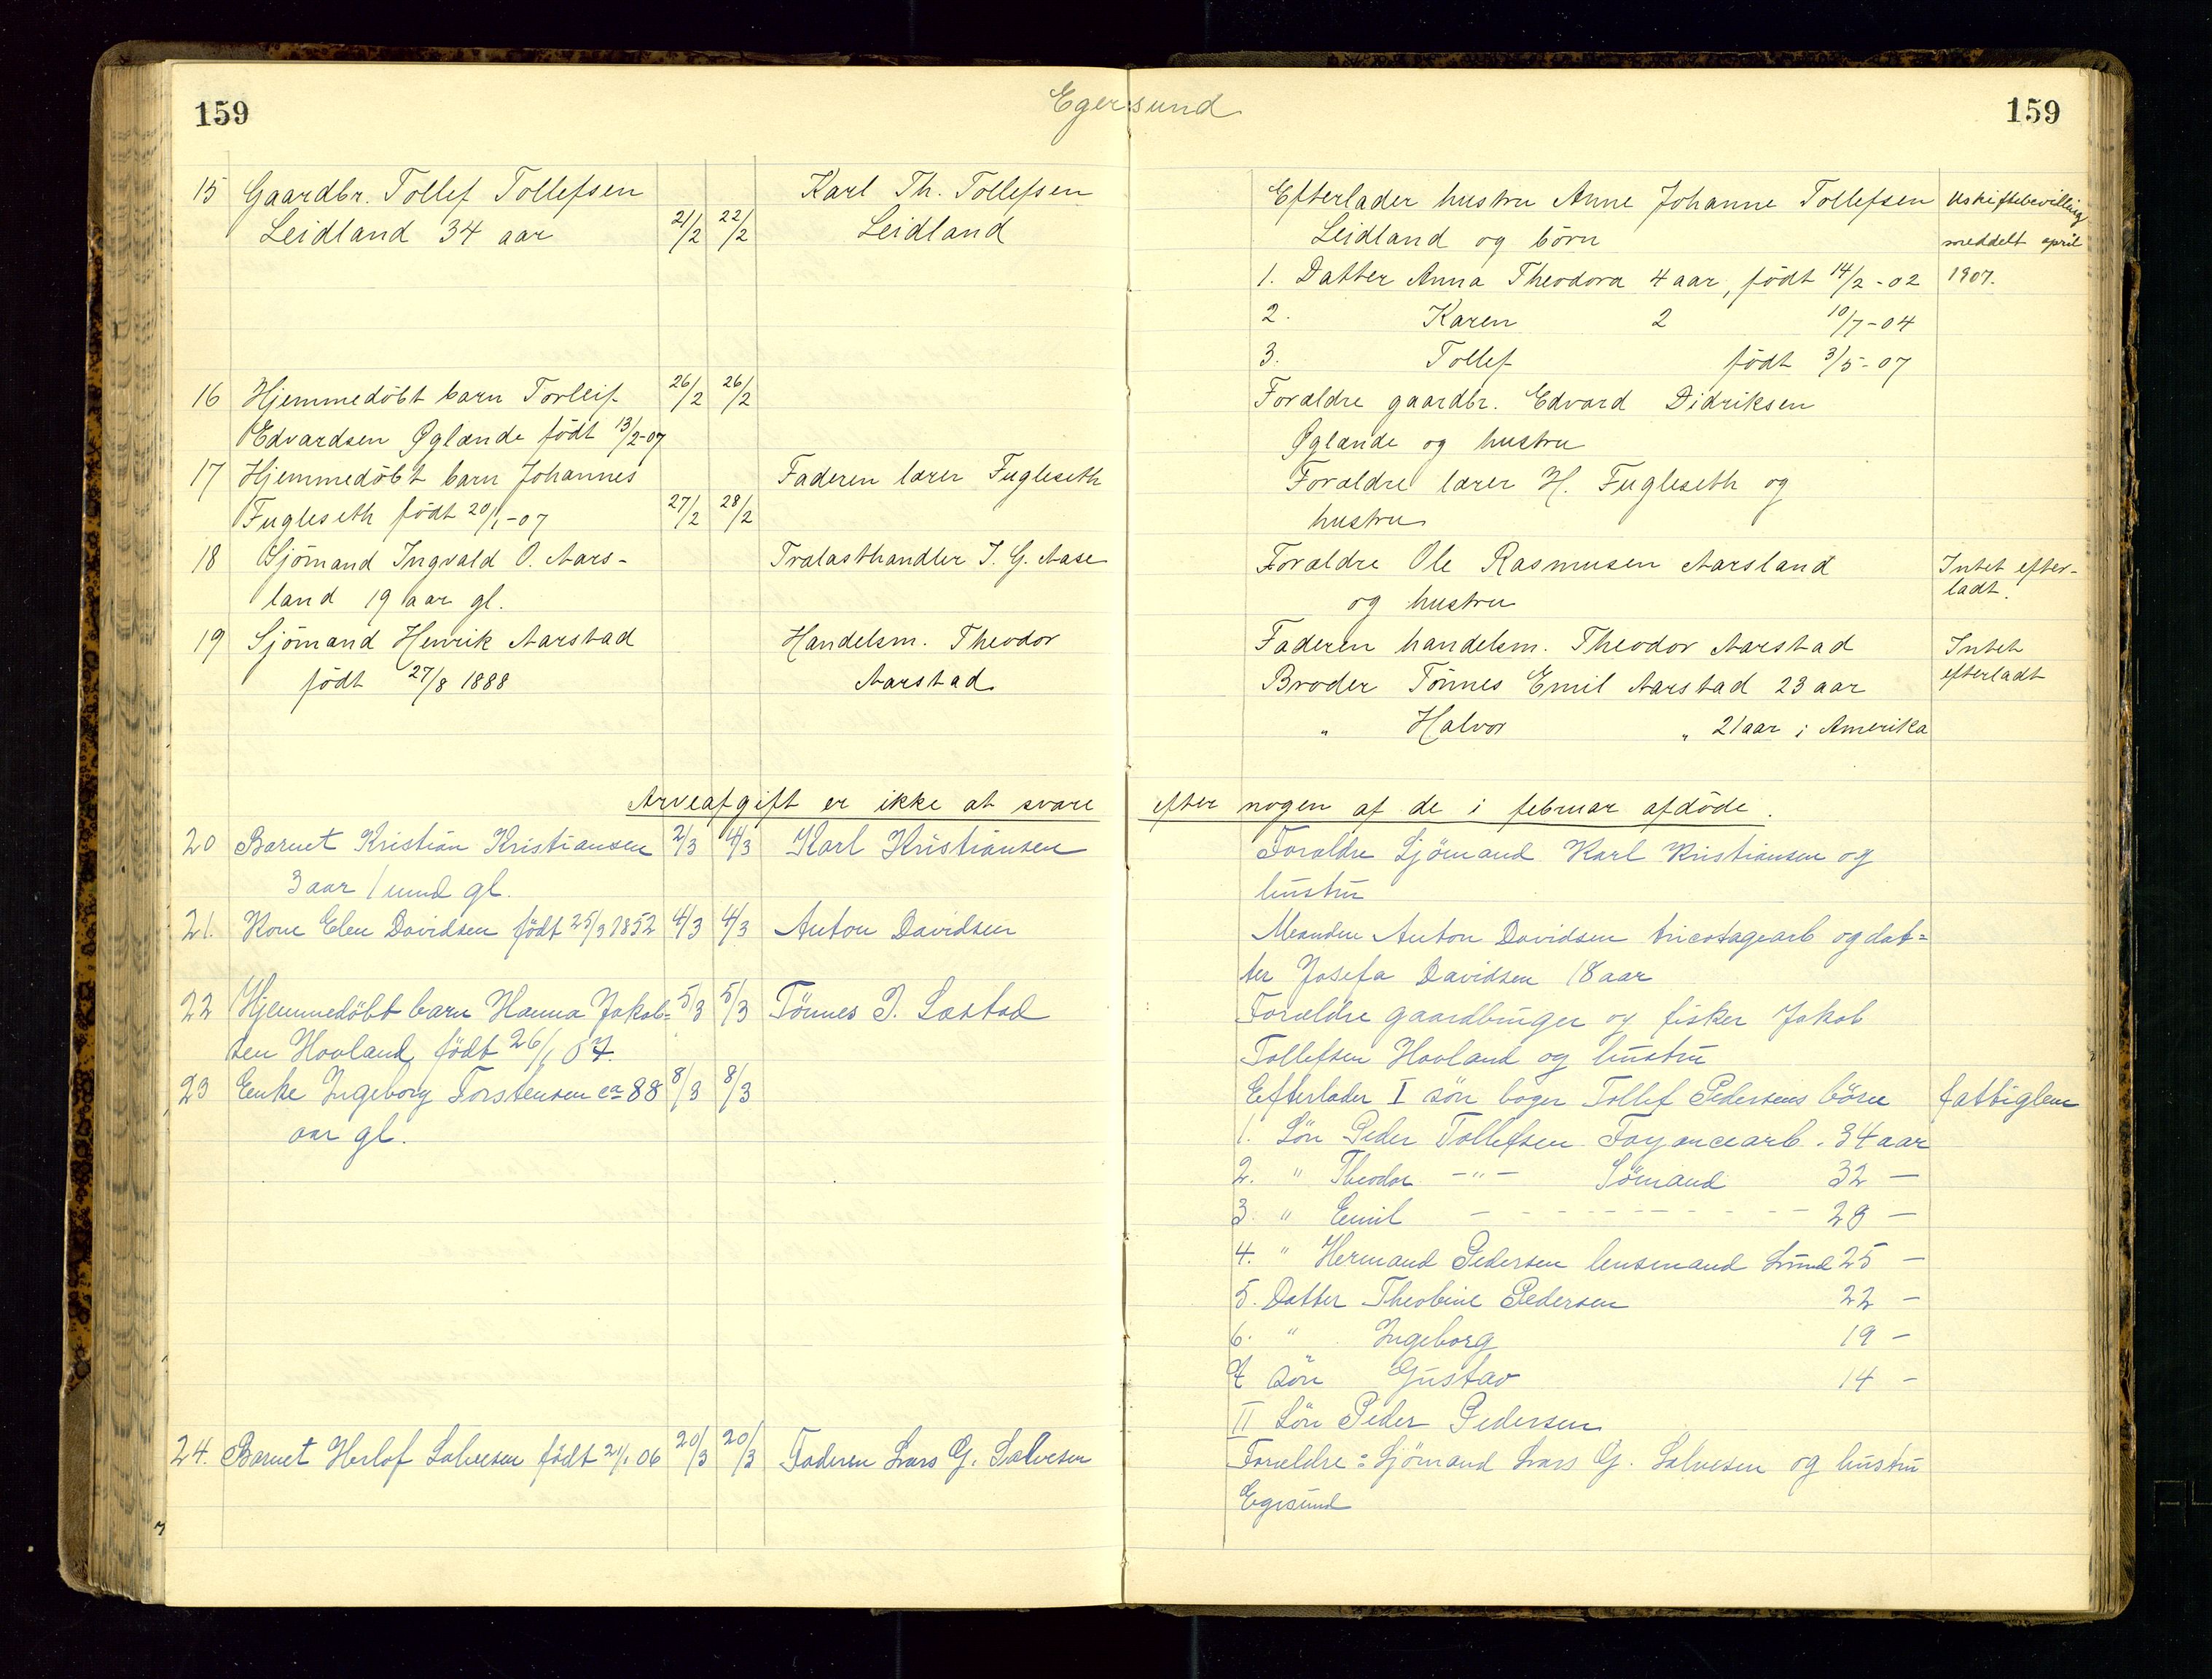 159
Egersund
159
15 Gaardbr. Tollef Tollefsen
Leidland 34 aar 21/2 22/2
Karl Th. Tollefsen
Leidland
Efterlader hustru Anne Johanne Tollefsen
Leidland og börn
1. Datter Anna Theodora 4 aar, födt 14/2-02
2. Karen 2 10/7-04
3. Tollef födt 3/5-07
Uskiftebevilling
meddelt april
1907.
16 Hjemmedöbt barn Torleif 26/2 26/2
Edvardsen Øglænde födt 13/2-07
Forældre gaardbr. Edvard Didriksen
Øglænde og hustru
17 Hjemmedöbt barn Johannes
Fugleseth födt 20/1-07 27/2 28/2
Faderen lærer Fugleseth
Forældre lærer H. Fugleseth og
hustru
18 Sjömand Ingvald O. Aars-
land 19 aar gl.
Trælasthandler I. G. Aase
Forældre Ole Rasmusen Aarsland
og hustru
Intet efter-
ladt.
19 Sjömand Henrik Aarstad
födt 27/8 1888
Handelsm. Theodor
Aarstad
Faderen handelsm. Theodor Aarstad
Broder Tönnes Emil Aarstad 23 aar
" Halvor " 21 aar i Amerika
Intet
efterladt
Arveafgift er ikke at svare efter nogen af de i februar afdöde.
20 Barnet Kristian Kristiansen 2/3 4/3 Karl Kristiansen
3 aar 1 mnd gl.
Forældre Sjömand Karl Kristiansen og
hustru
21. Kone Elen Davidsen födt 25/9 1852 4/3 4/3 Anton Davidsen
Manden Anton Davidsen tricotagearb og dat=
ter Josefa Davidsen 18 aar
22 Hjemmedöbt barn Hanna Jakob= 5/3 5/3 Tönnes I. Sæstad
sen Hovland födt 26/1 07.
Forældre gaardbruger og fisker Jakob
Tollefsen Hovland og hustru
23 Enke Ingeborg Torstensen ca 88 8/3 8/3
aar gl.
Efterlader I sön bager Tollef Pedersens börn
1. Sön Peder Tollefsen Fayancearb. 34 aar
2. " Theodor -"- Sömand 32 -
3. " Emil - - - 29 -
4. " Hermand Pedersen lensmand Lund 25 -
5. Datter Theobine Pedersen 22 -
6. " Ingeborg 19 -
7 Sön Gustav 14 -
II Sön Peder Pedersen
fattiglem
24. Barnet Herlof Salvesen födt 21/1 06 20/3 20/3 Faderen Lars G. Salvesen
Forældre: Sjömand Lars G. Salvesen og hustru
Egersund